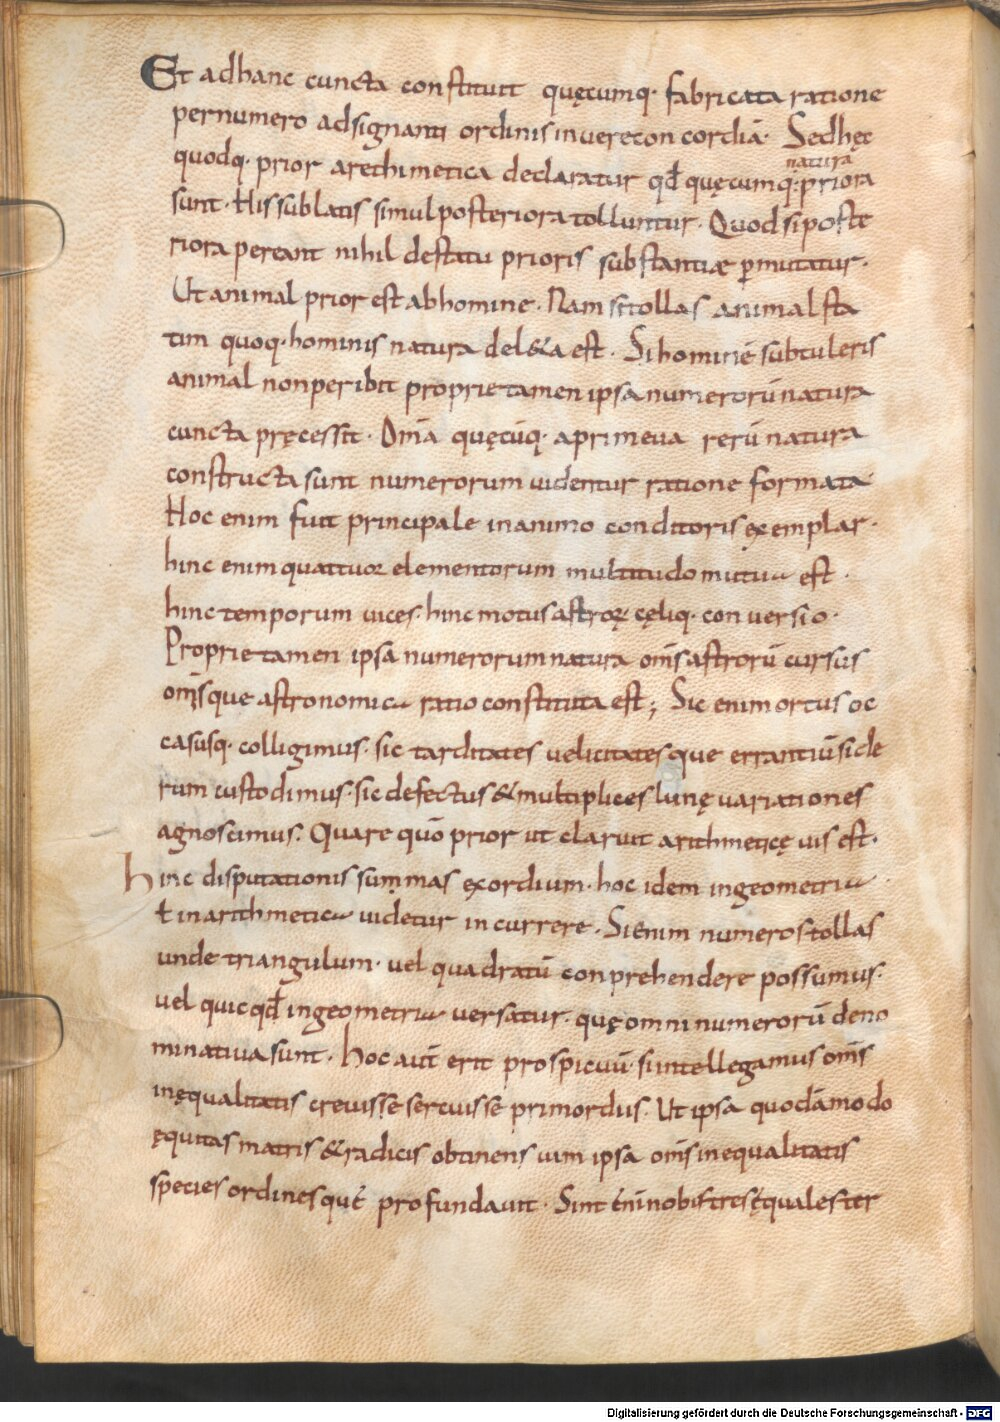 Et adhanc cuncta constituit quęcumq· fabricata ratione
pernumero adsignanti ordinis invenere con cordiā· Sedhęc
quodq· prior arethimetica declaratur qđ quęcumq· natura priora
sunt· His sublatis simul posteriora tolluntur· Quod si poste
riora pereant nihil destatu prioris substantiae p̱mutatur·
Ut animal prior est ab homine· Nam si tollas animal sta
tim quoq· hominis natura del&a est· Si hominē subtuleris
animal non peribit proprie tamen ipsa numerorū natura
cuncta pręcessit· Om̄a quęcūq· a primeva rerū natura
constructa sunt numerorum videntur ratione formata
Hoc enim fuit principale in animo conditoris exemplar·
hinc enim quattuor elementorum multitudo mutua est·
hinc temporum vices· hinc motus astroꝝ cęliq· conversio·
Proprie tamen ipsa numerorum natura om̄s astrorū cursus
om̄sque astronomica ratio constituta est; Sic enim ortus oc
casusq· colligimus· sic tarditates velicitatesque errantiū side
rum custodimus· sic defectus & multiplices lunę variationes
agnoscimus· Quare quō prior ut claruit arithmeticę vis est·
hinc disputationis summas exordium· hoc idem in geometria
ł in arithmetica videtur incurrere· Si enim numeros tollas
unde triangulum· vel quadratū conprehendere possumus·
vel quicqđ in geometria versatur· quę omni numerorū deno
minativa sunt· hoc aut̄ erit prospicuū si intellegamus om̄s
inęqualitatis crevisse sercuisse primordiis· Ut ipsa quodāmodo
ęquitas matris & radicis obtinens vim ipsa om̄s inequalitatis
species ordinesquę profundavit· Sint eni nobis tres ęquales ter
Digitalisierung gefördert durch die Deutsche Forschungsgemeinschaft - DFG